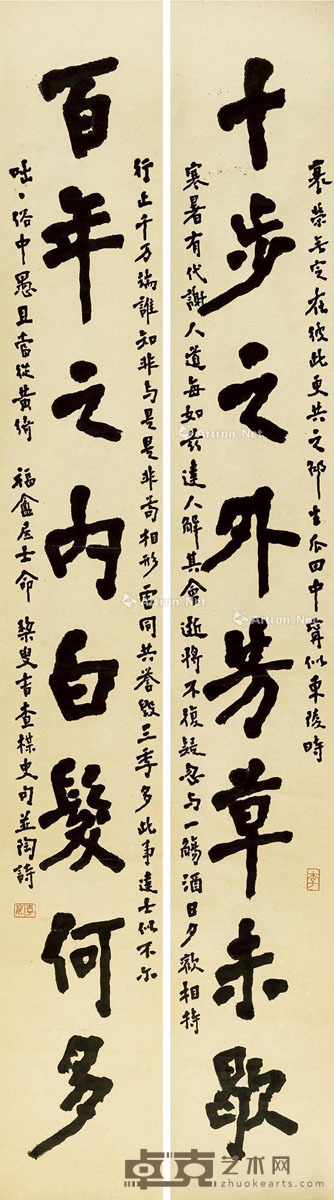 衰榮无定在彼此更共之邵生瓜田中寧似東陵時
十步之外芳草未歇
寒暑有代謝人道每如茲達人解其會逝將不復疑忽与一觴酒日夕歡相持
行止千万端誰知非与是是非苟相形雷同共誉毀三季多此事達士似不尔
百年之內白髮何多
咄〻俗中愚且當從黃綺 福盦居士命 槃叟書查楳史句並陶詩
Artron.Net
卓克艺术网
www.zhuokearts.com